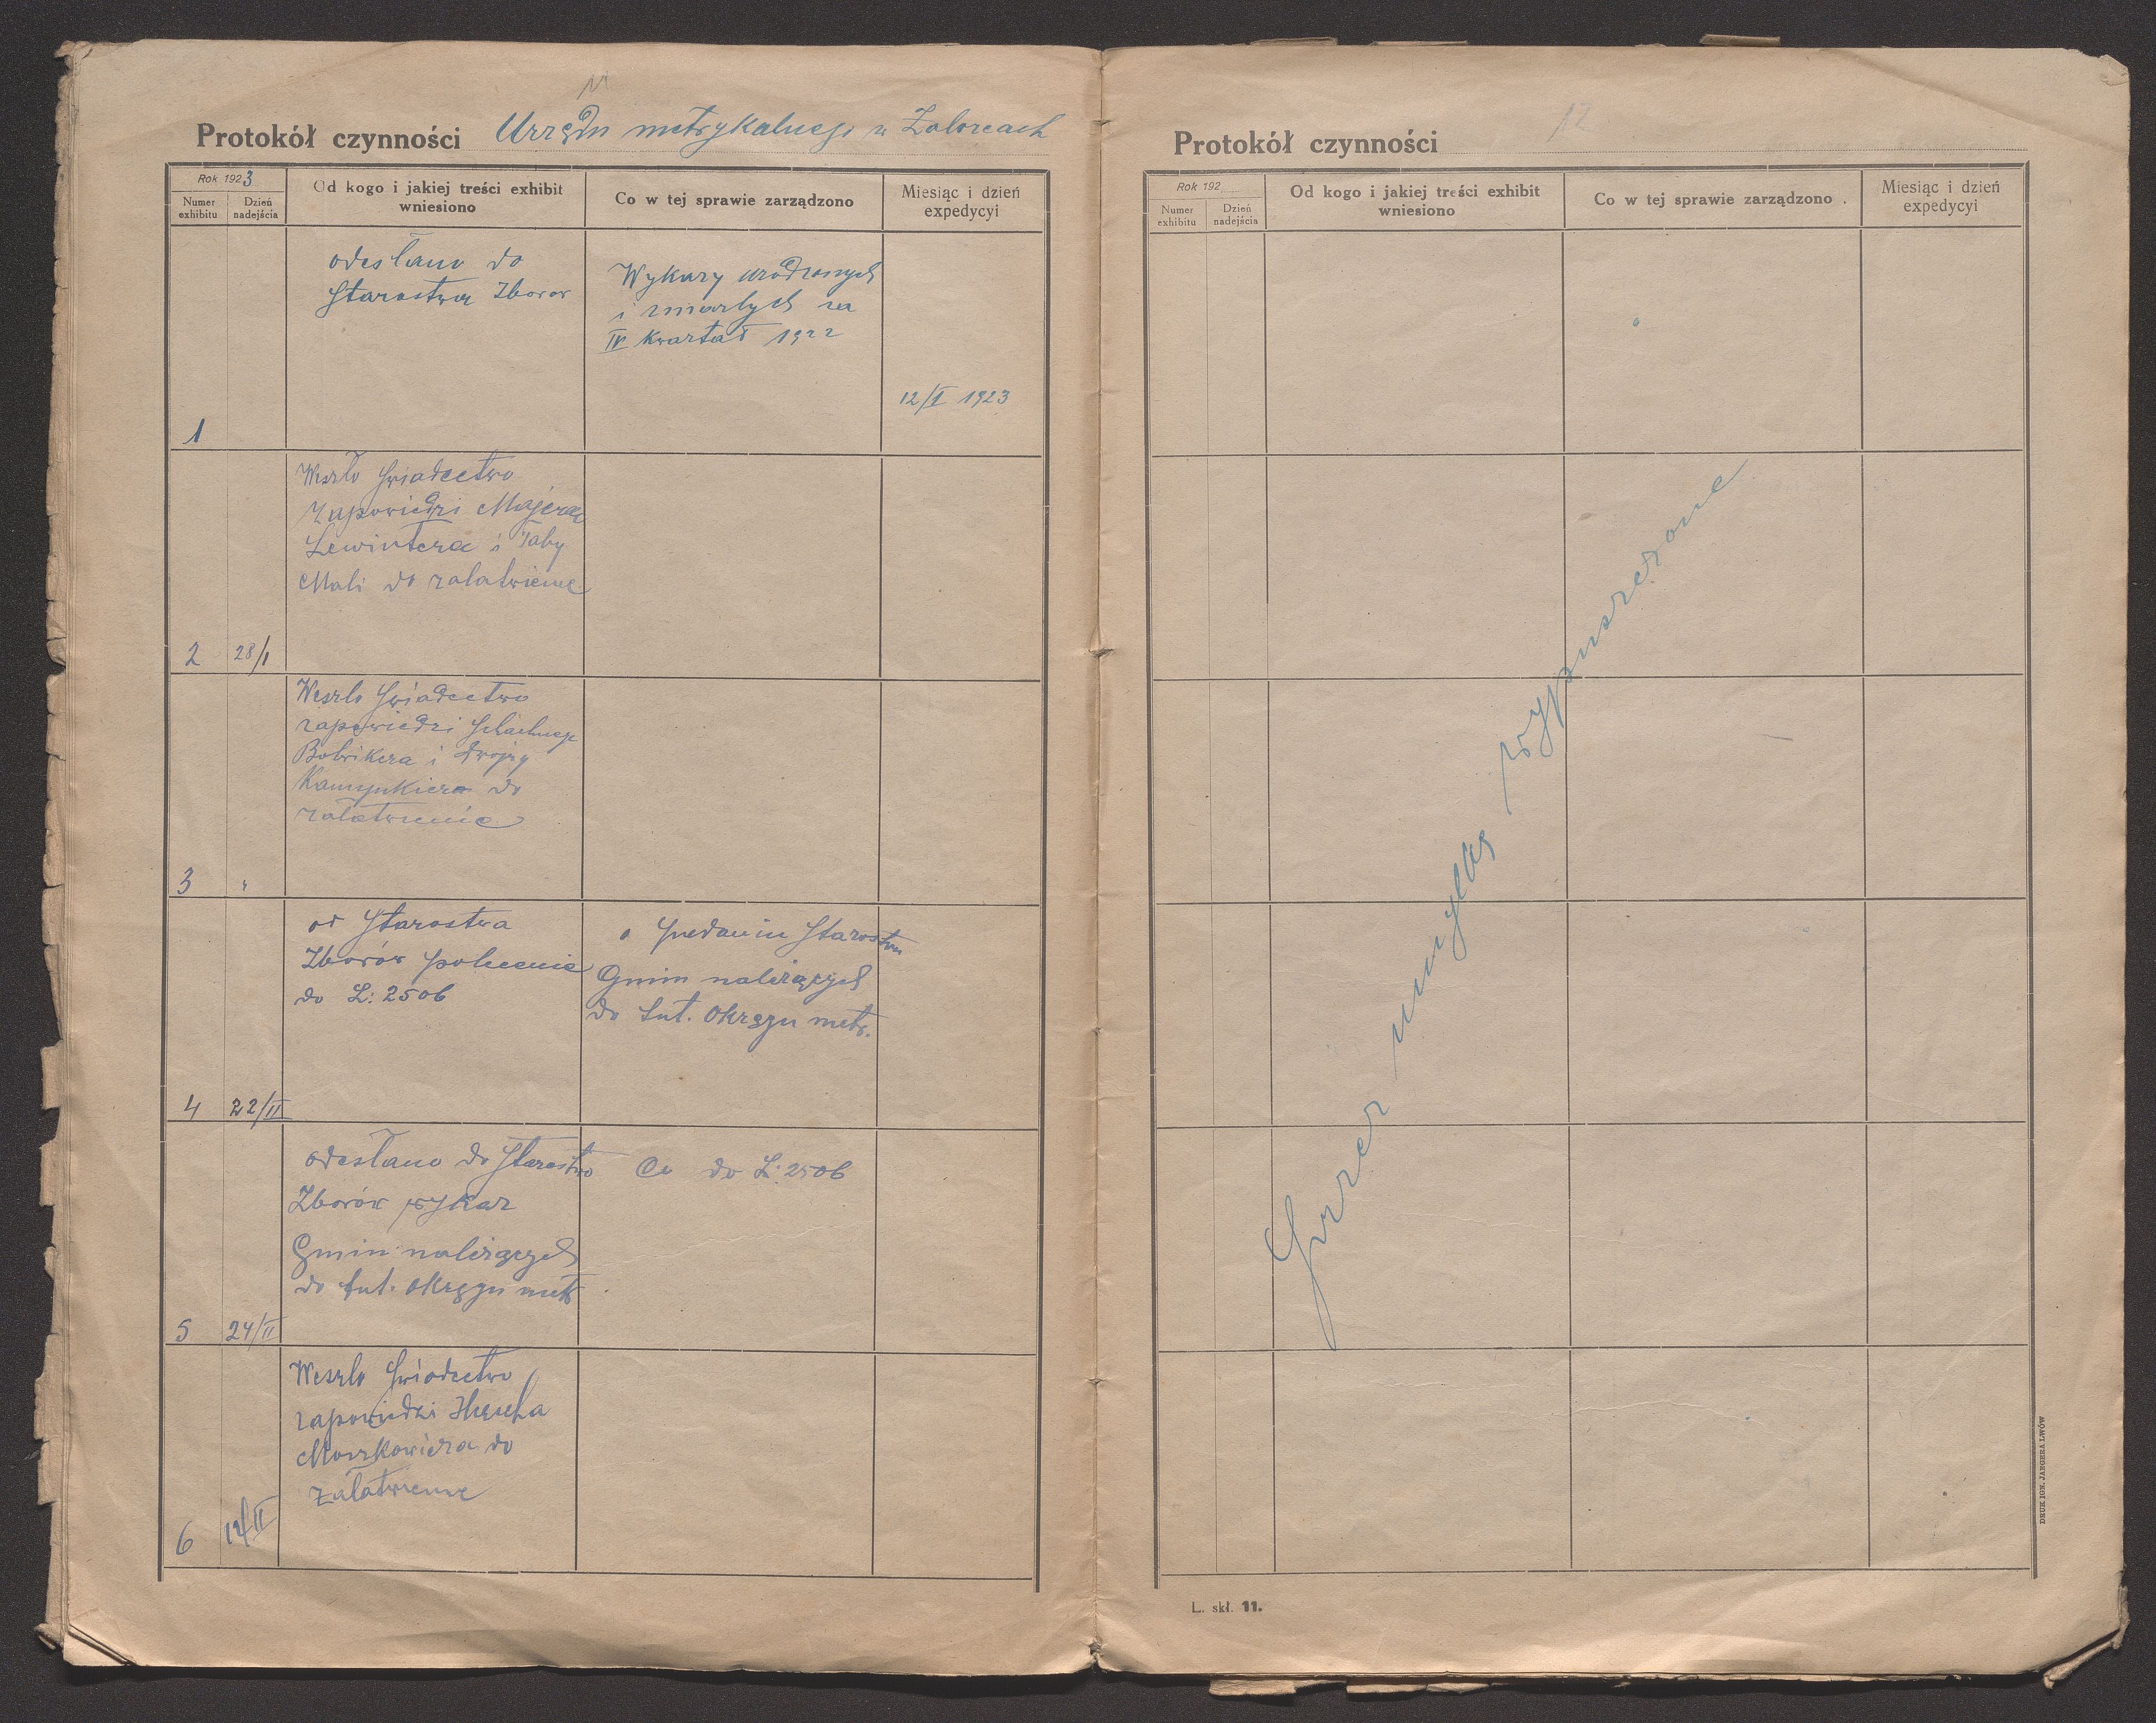 11
Protokół czynności Urzędu metrykalnego w Załoźcach
Rok 1923
Numer exhibitu
Dzień nadejścia
Od kogo i jakiej treści exhibit wniesiono
Co w tej sprawie zarządzono
Miesiąc i dzień expedycyi
odesłano do
Starostwa Zborow
Wykazy urodzonych
i zmarłych za
IV kwartał 1922
12/I 1923
1
Weszło Swiadectwo
zapowiedzi Majera
Lewintera i Taby
Mali do załatwienie
2 28/I
Weszlo Swiadectwo
zapowiedzi
i Dwojry
do
załatwienie
3 "
od Starostwa
Zborów polecenie
do L: 2506
o podaniu Starostwu
Gmin należących
do tut. Okręgu metr.
4 22/II
odesłano do Starostwo
Zborów wykaz
Gmin należących
do tut. okręgu metr
Co do L: 2506
5 24/II
Weszlo Swiadectwo
zapowiedzi Herscha
Moszkowicza do
załatwienie
6 12/II
12
Protokół czynności
Rok 192
Numer exhibitu
Dzień nadejścia
Od kogo i jakiej treści exhibit wniesiono
Co w tej sprawie zarządzono
Miesiąc i dzień expedycyi
przez omyłkę wypuszczone
L. skł. 11.
DRUK IGN. JAEGERA LWÓW